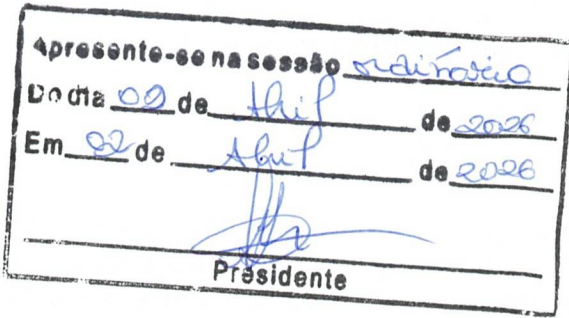 Apresente-se na sessão ordinária
Do dia 09 de Abril de 2026
Em 02 de Abril de 2026
Presidente